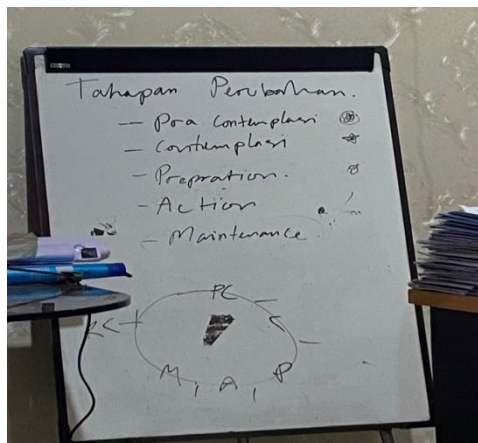 Tahapan Perubahan.
— Pra Contemplasi
— Contemplasi
- Prepration.
- Action
- Maintenance
PC
C
P
A
M